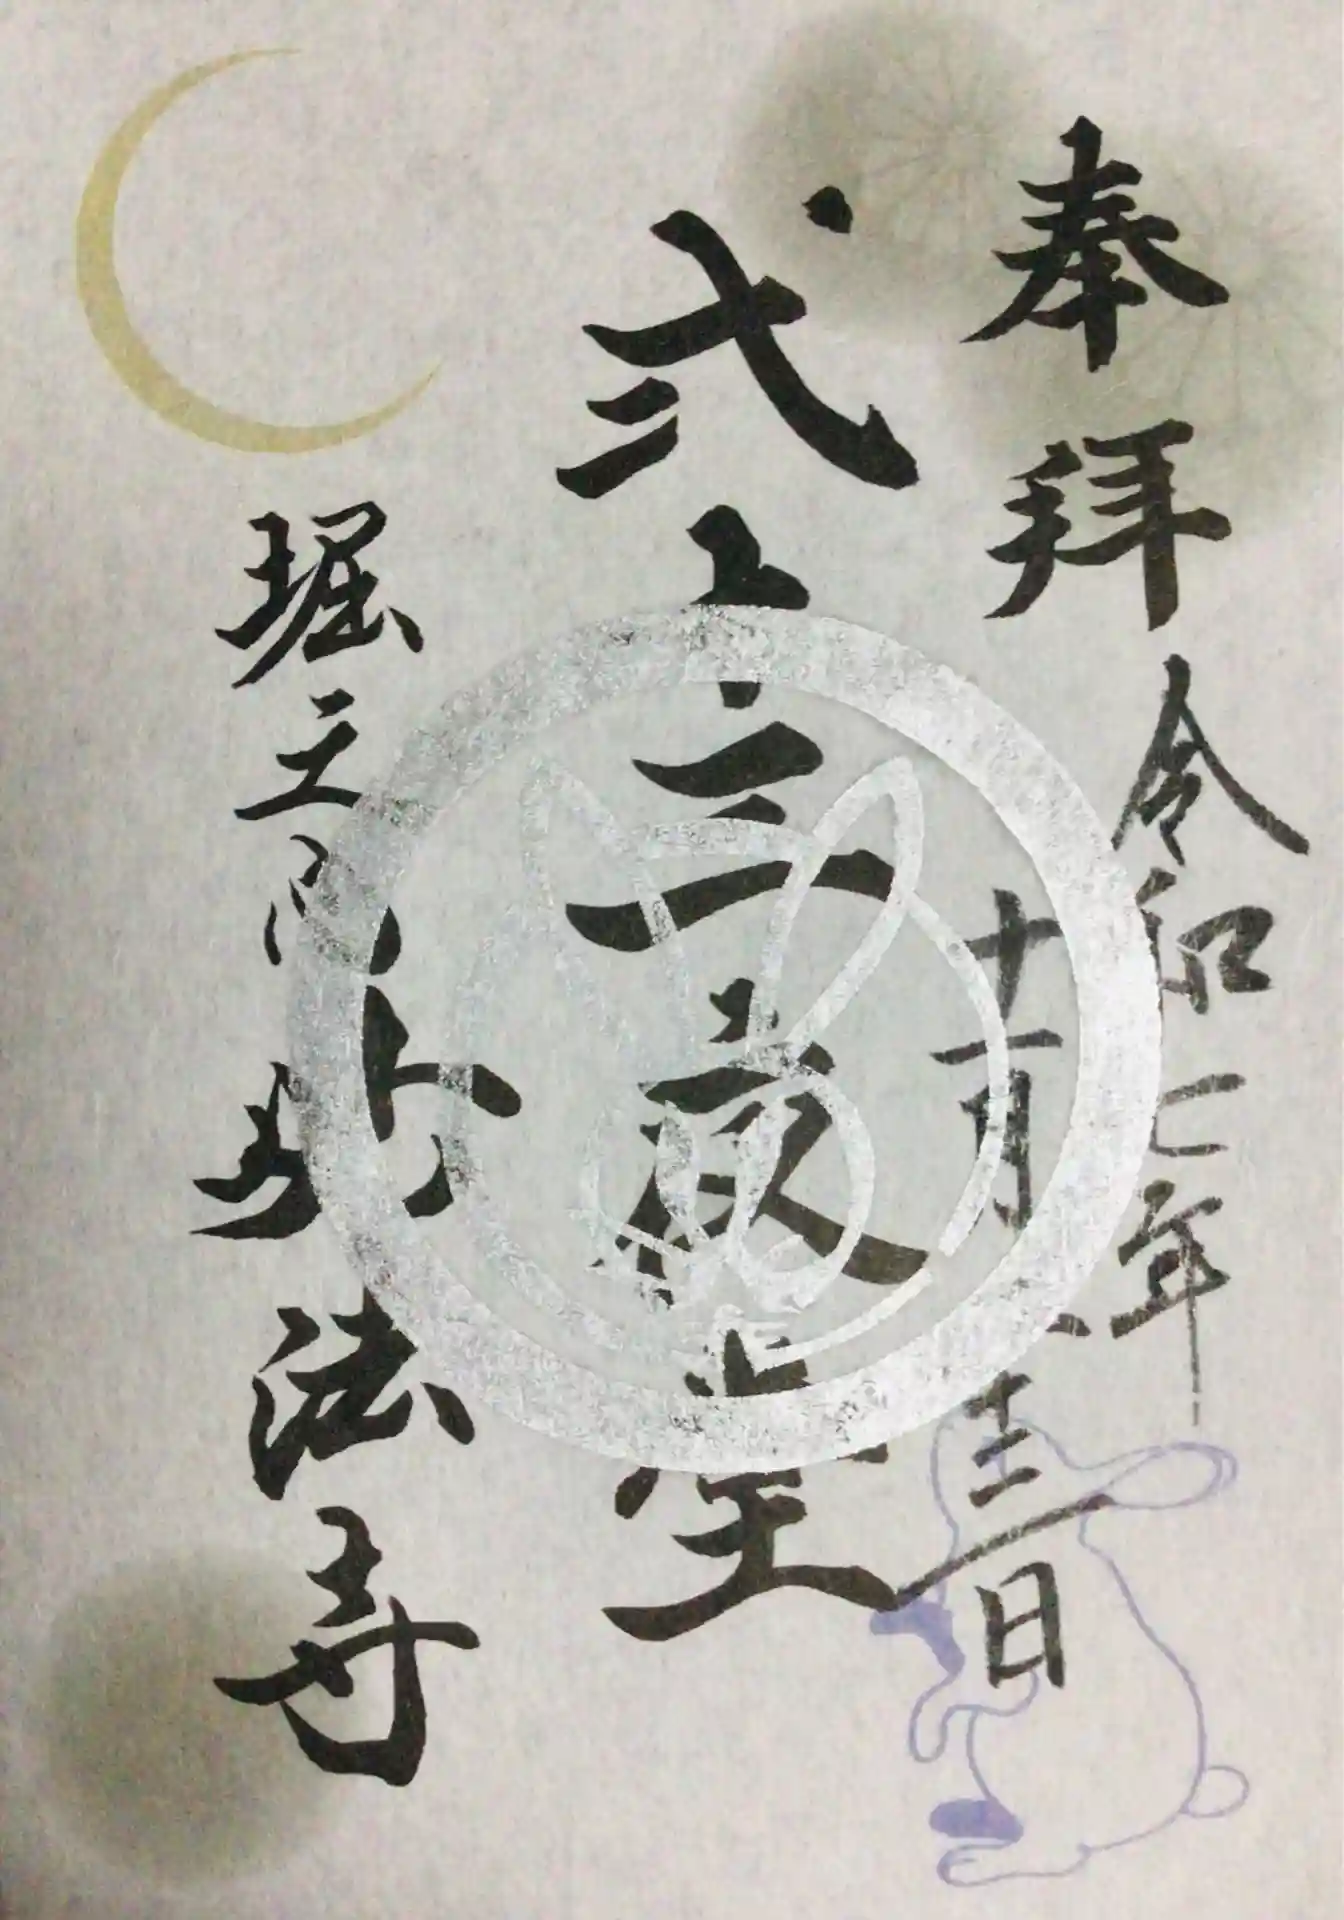 奉拝 令和七年
十一月二十三日
弐十三夜堂
堀之内 妙法寺